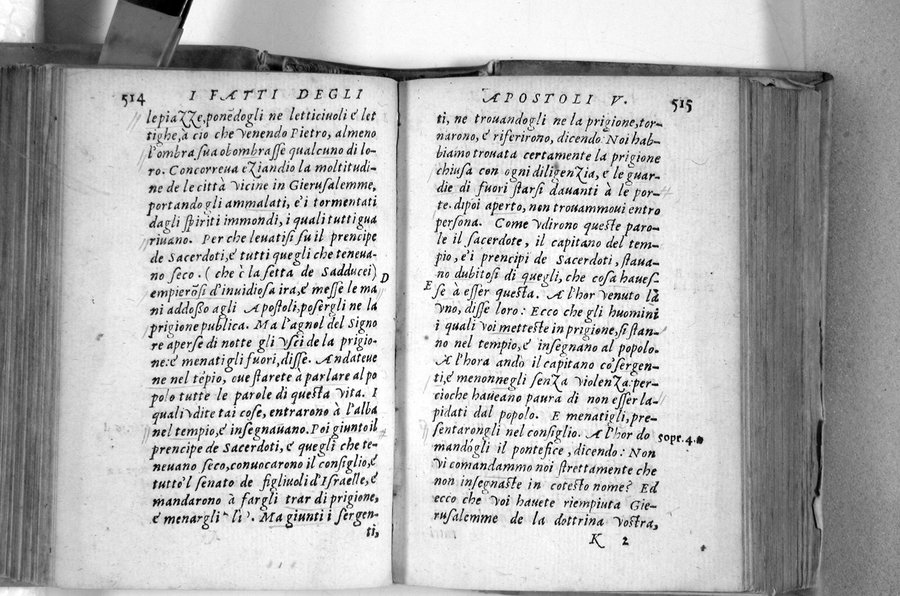 514 I FATTI DEGLI
le piazze, ponēdogli ne letticiuoli e let
tighe, à cio che venendo Pietro, almeno
l'ombra sua obombrasse qualcuno di lo-
ro. Concorreua eziandio la moltitudi-
ne de le città vicine in Gierusalemme,
portando gli ammalati, e i tormentati
dagli spiriti immondi, i quali tutti gua
riuano. Per che leuatisi su il prencipe
de Sacerdoti, e tutti quegli che teneua-
no seco. (che è la setta de Sadducei) D
empierōsi d'inuidiosa ira, e messe le ma
ni addosso agli Apostoli, posergli ne la
prigione publica. Ma l'agnol del Signo
re aperse di notte gli vsci de la prigio-
ne: e menatigli fuori, disse. Andateue
ne nel tēpio, oue starete à parlare al po
polo tutte le parole di questa vita. I
quali vdite tai cose, entrarono à l'alba
nel tempio, e insegnauano. Poi giunto il
prencipe de Sacerdoti, e quegli che te-
neuano seco, conuocarono il consiglio, e
tutto'l senato de figliuoli d'Israelle, e
mandarono à fargli trar di prigione,
e menargli li. Ma giunti i sergen-
ti,
APOSTOLI V. 515
ti, ne trouandogli ne la prigione, tor-
narono, e riferirono, dicendo Noi hab-
biamo trouata certamente la prigione
chiusa con ogni diligenzia, e le guar-
die di fuori starsi dauanti à le por-
te. dipoi aperto, non trouammoui entro
persona. Come vdirono queste paro-
le il sacerdote, il capitano del tem-
pio, e i prencipi de Sacerdoti, staua-
no dubitosi di quegli, che cosa haues-
E se à esser questa. Al'hor venuto là
vno, disse loro: Ecco che gli huomini
i quali voi metteste in prigione, si stan-
no nel tempio, e insegnano al popolo.
Al'hora ando il capitano co' sergen-
ti, e menonnegli senza violenza: per-
cioche haueano paura di non esser la-
pidati dal popolo. E menatigli, pre-
sentarongli nel consiglio. Al'hor do
mandógli il pontefice, dicendo: Non sopr. 4.
vi comandammo noi strettamente che
non insegnaste in cotesto nome? Ed
ecco che voi hauete riempiuta Gie-
rusalemme de la dottrina vostra,
K 2